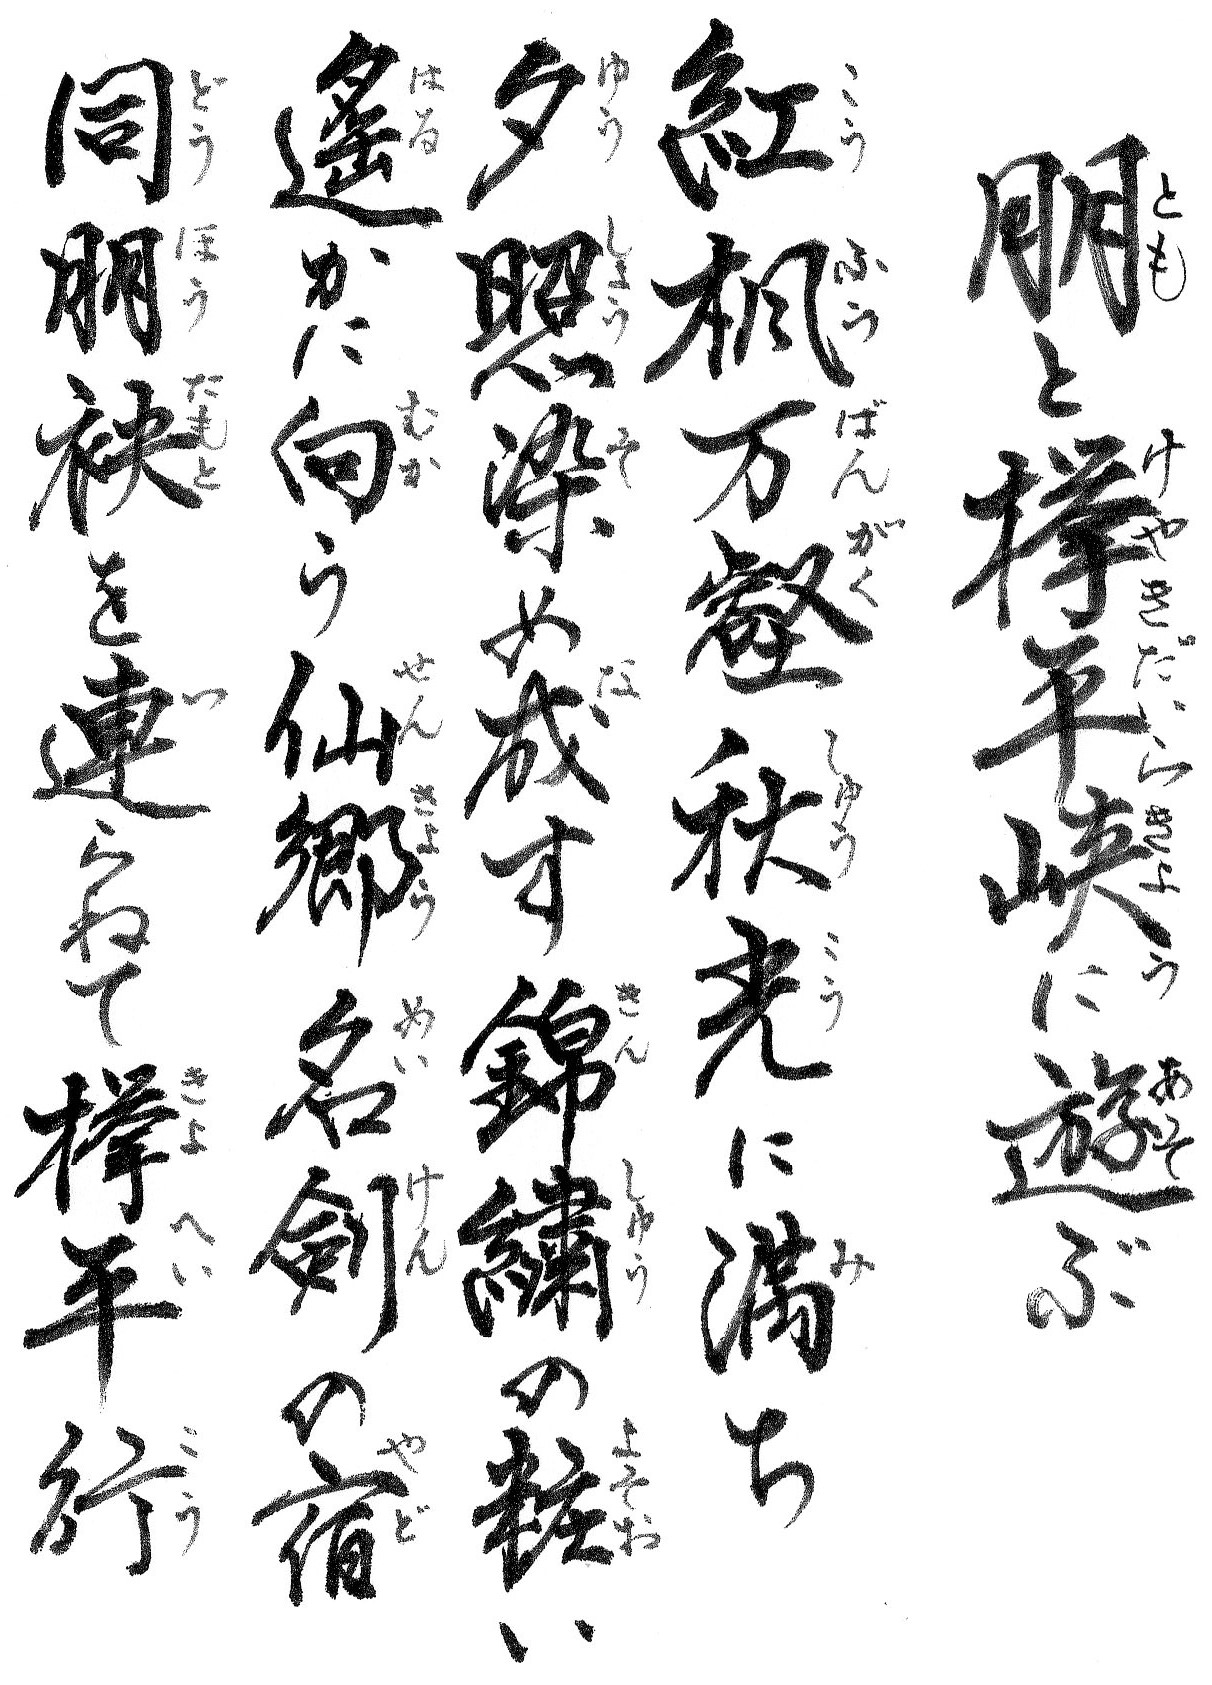 朋と欅平峡に遊ぶ
とも けやきだいらきょう あそ
紅楓万壑秋光に満ち
こう ふう ばん がく しゅう こう み
夕照染め成す錦繍の粧い
ゆう しょう そ な きん しゅう よそお
遙かに向う仙郷名剣の宿
はる むか せん きょう めい けん やど
同朋袂を連らねて欅平行
どう ほう たもと つ きょ へい こう